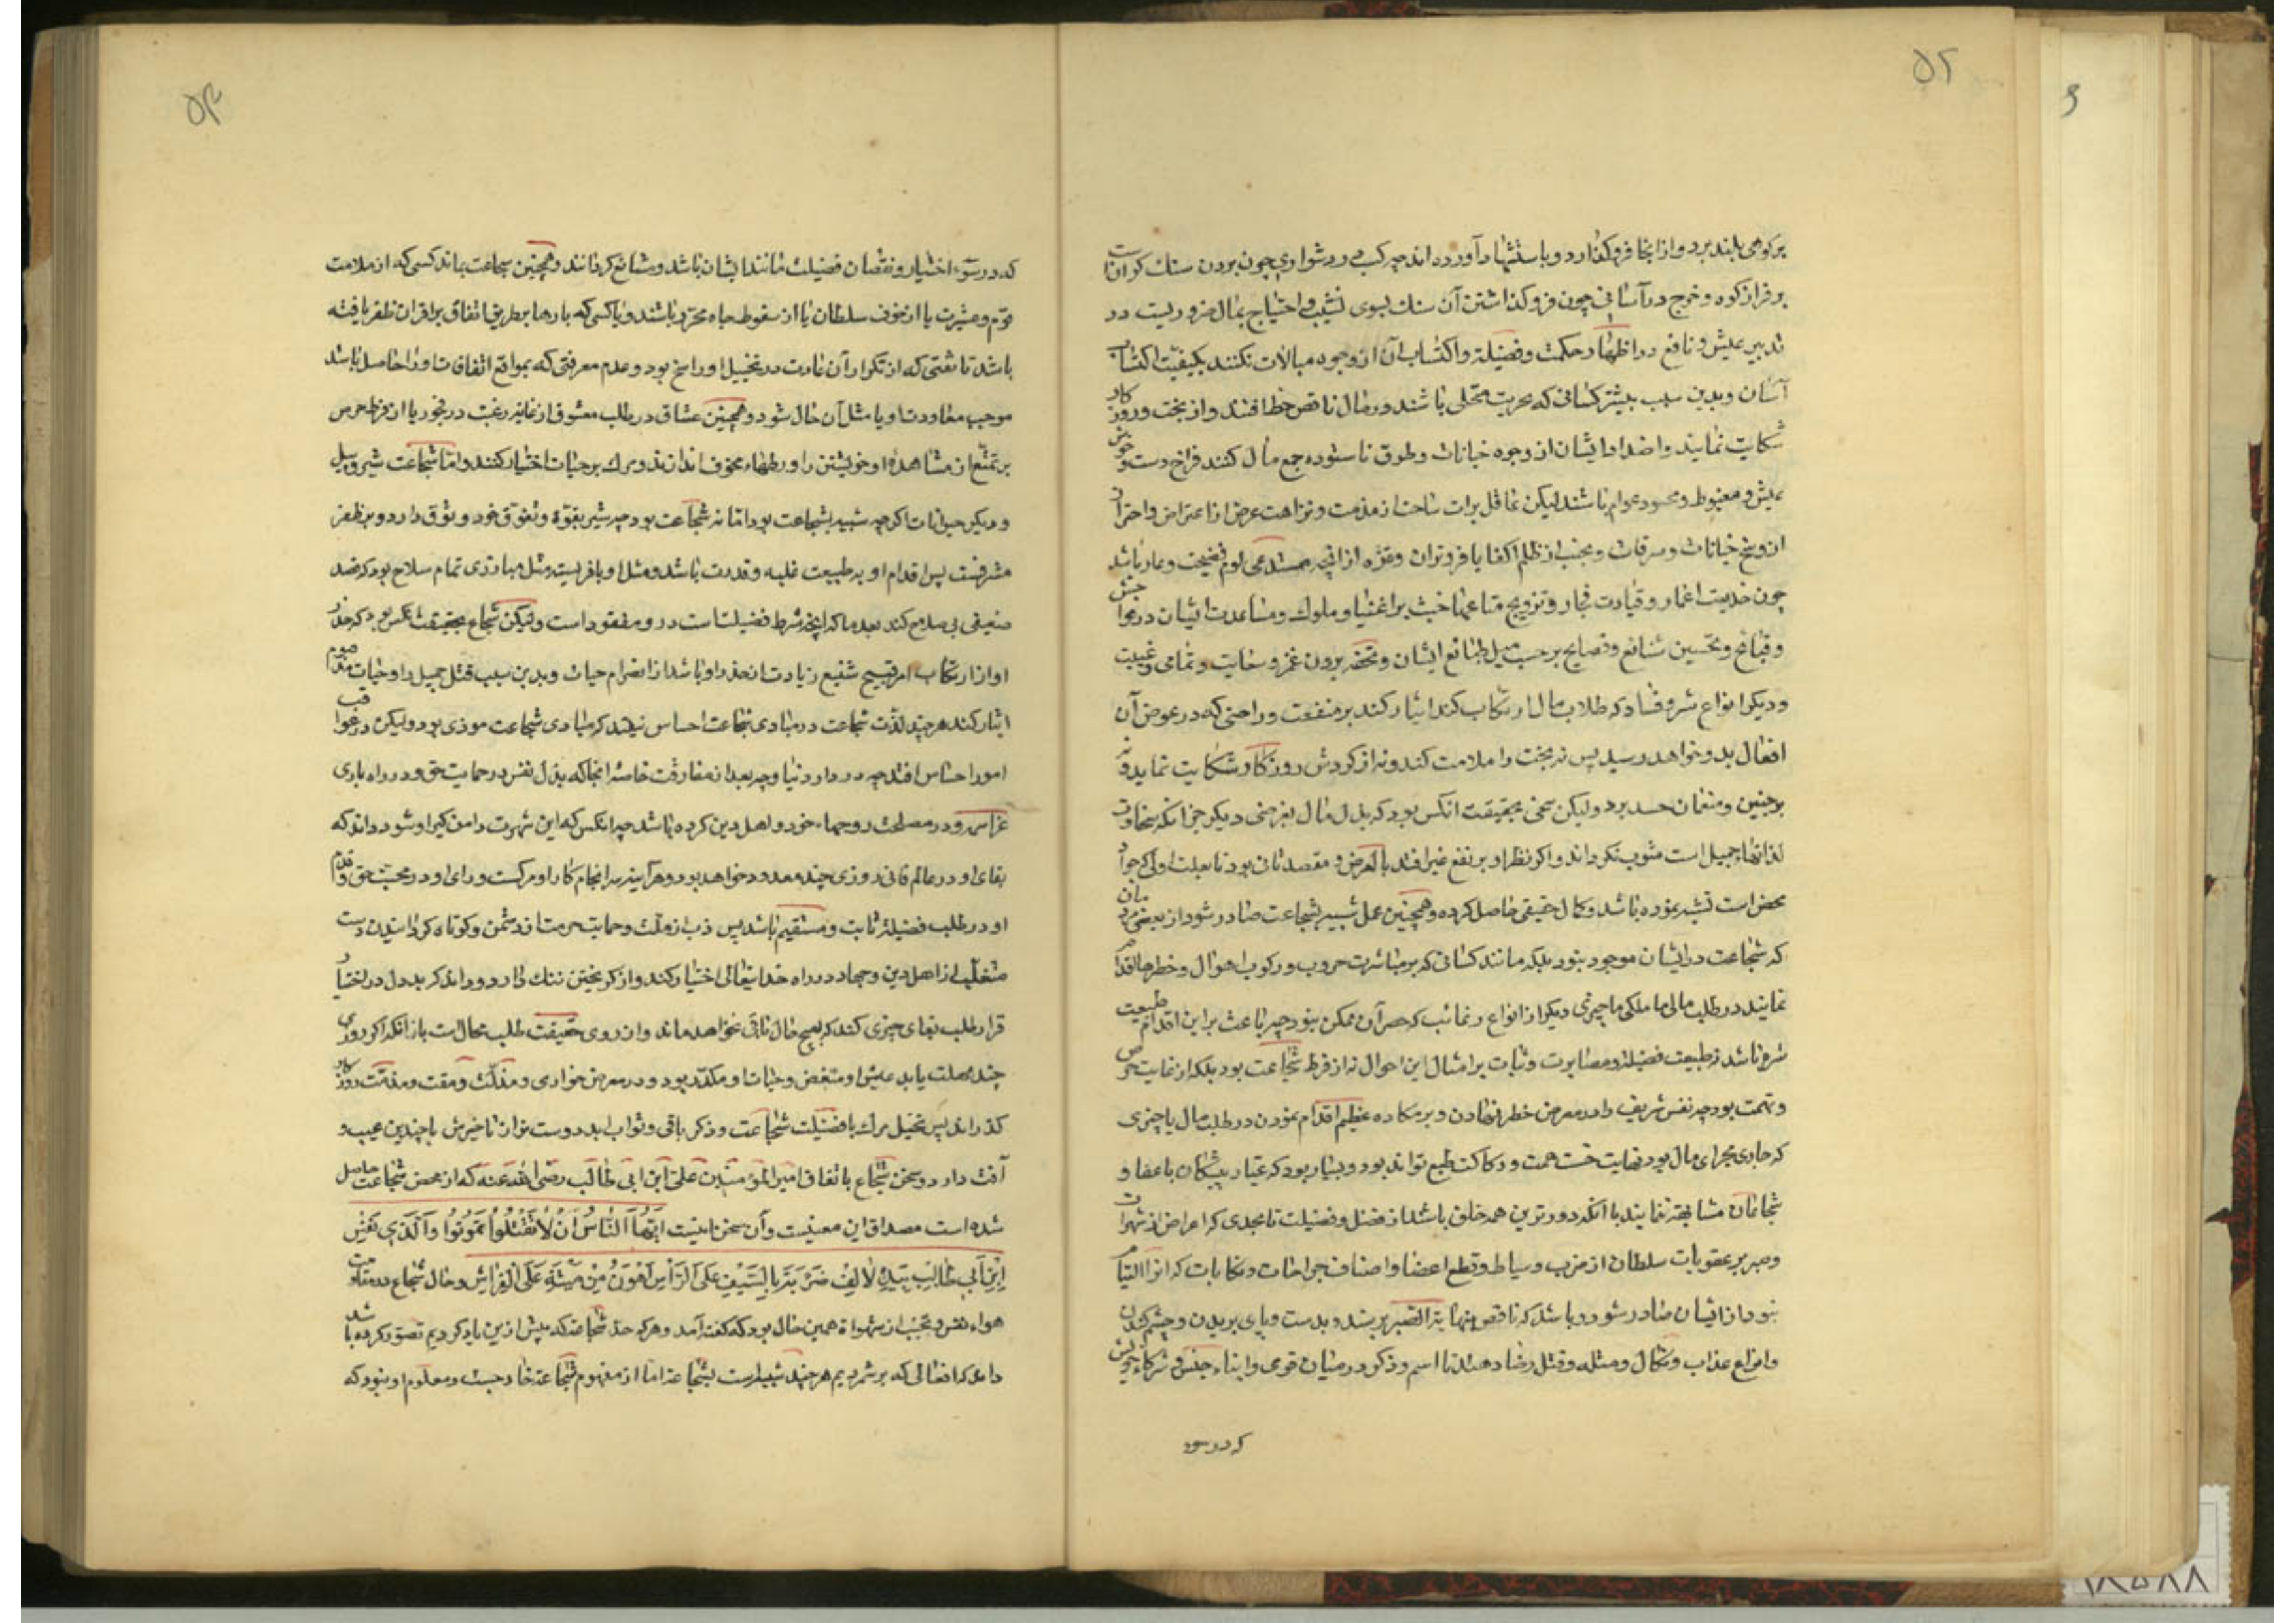 ۵۲
بر کوهی بلند برد و از انجا فرو گذارد و باستشهاد آورده اند چه کسب در دشواری چون بردن سنك کرانست
بر فراز کوه و خرج در آسانی چون فرو گذاشتن آن سنك بسوی نشیب و احتیاج بمال ضروریست در
تدبیر عیش و نافع در اظهار حکمت و فضیلة و اکتساب آن از وجوه مبالات نکنند بکیفیّت اکتساب
آسان و بدین سبب بیشتر کسانی که بحریت متحلی باشند در مال ناقص حظ افتند و از بخت و روزکار
شکایت نمایند و اضداد ایشان از وجوه خیانات و طرق ناستوده جمع مال کنند فراخ دست و خوش
عیش و مغبوط و محسود عوام باشند لیکن عاقل برات ساحت از مذمت و نزاهت عرض از اعتراض و احتراز
از وسخ خیانات و سرقات و تجنب از ظلم اکفا یا فروتران و تنزّه از انچه مستدعی لوم و فضیحت و عار باشد
چون خدیعت اغمار و قیادت فجار و ترویج متاعهاء خبیث بر اغنیا و ملوك و مساعدت ایشان در فواحش
و قبائح و تحسین شنائع و فضایح بر حسب میل طبائع ایشان و تحفه بردن غمز و سعایت و نمامی و غیبت
و دیکر انواع شر و فساد که طلاب مال ارتکاب کنند ایثار کند بر منفعت و راحتی که در عوض آن
افعال بدو خواهد رسید پس نه بخت را ملامت کند و نه از کردش روزکار شکایت نماید و نه
بر چنین و منعمان حسد برد و لیکن سخی بحقیقت انکس بود که بذل مال بغرضی دیکر جز انکه سخاوت
لذاتها جمیل است مشوب نکرداند و اکر نظر او بر نفع غیر افتد بالعرض و مقصد ثانی بود تا بعلت اولی که جواد
محض است تشبه نموده باشد و کمال حقیقی حاصل کرده و همچنین عمل شبیه بشجاعت صادر شود از بعضی مردمان
که شجاعت در ایشان موجود نبود بلکه مانند کسانی که بر مباشرت حروب و رکوب اهوال و خطرها اقدام
نمایند در طلب مالی یا ملکی یا چیزی دیکر از انواع رغائب که حصر آن ممکن نبود چه باعث بر این اقدام طبیعت
شره باشد نه طبیعت فضیلة و مصابرت و ثبات بر امثال این احوال نه از فرط شجاعت بود بلکه از غایت حرص
و نهمت بود چه نفس شریف را در معرض خطر نهادن و بر مکاره عظیم اقدام نمودن در طلب مال یا چیزی
که جاری مجرای مال بود نهایت خست همت و رکاکت طبع تواند بود و بسیار بود که عیار پیشکان با عفا و
شجاعان مشابهة نمایند با انکه دورترین همه خلق باشند از فضل و فضیلت تا بحدی که اعراض از شهوات
و صبر بر عقوبات سلطان از ضرب و سیاط و قطع اعضا و اصناف جراحات و نکایات که انرا التیام
نبود از ایشان صادر شود و باشد که باقصی نهایة الصبر برسند و بدست و پای بریدن و چشم کندن
و انواع عذاب و نکال و مثله و قتل رضا دهند تا اسم و ذکر در میان قوی و ابناء جنس و شرکاء خویش
که در سوء
۵۳
که در سوء اختیار و نقصان فضیلت مانند ایشان باشد و شائع کردانند و همچنین بشجاعت ماند کسی که از ملامت
قوم و عشیرت یا از خوف سلطان یا از سقوط جاه محترز باشد و یا کسی که بارها بطریق اتفاق بر اقران ظفر یافته
باشد تا ثقتی که از تکرار آن عادت در تخیل او راسخ بود و عدم معرفتی که بمواقع اتفاقات او را حاصل باشد
موجب معاودت او با مثل آن حال شود و همچنین عشاق در طلب معشوق از غایة رغبت در فجور یا از فرط حرص
بر تمتّع از مشاهدۀ او خویشتن را در ورطهاء مخوف اندازند و مرك بر حیات اختیار کنند و امّا شجاعت شیر و پیل
و دیکر حیوانات اکرچه شبیه بشجاعت بود امّا نه شجاعت بود چه شیر بقوّة و تفوّق خود وثوق دارد و بر ظفر
مشرفست پس اقدام او بر طبیعت غلبه و قدرت باشد و مثل او با فریسه مثل مبارزی تمام سلاح بود که قصد
ضعیفی بی سلاح کند بعد ما که انچه شرط فضیلتست در و مفقود است و لیکن شجاع بحقیقت انکس بود که حذر
او از ارتکاب امر قبیح شنیع زیادت از حذر او باشد از انصرام حیات و بدین سبب قتل جمیل را بر حیات مذموم
ایثار کند هرچند لذّت شجاعت در مبادی شجاعت احساس نیفتد که مبادی شجاعت موذی بود و لیکن در عواقب
امور احساس افتد چه در دار دنیا و چه بعد از مفارقت خاصه انجا که بذل نفس در حمایت حق و در راه باری
عزّ اسمه و در مصلحت دوجهاء خود و اهل دین کرده باشد چه انکس که این شهرت دامن کیر او شود داند که
بقای او در عالم فانی روزی چند معدود خواهد بود و هر آینه سر انجام کار او مرکست و رای او در محبت حق و قدم
او در طلب فضیلة ثابت و مستقیم باشد پس ذب از ملت و حمایت حرمت از دشمن و کوتاه کردانیدن دست
متغلّب از اهل دین و جهاد در راه خدایتعالی اختیار کند و از کریختن ننك دارد و داند که بددل در اختیار
فرار طلب بقای چیزی کند که بهیچ حال باقی نخواهد ماند و از روی حقیقت طلب محال است باز آنکه اکر روزی
چند مهلت یابد عیش او منغض و حیات او مکدّر بود و در معرض خواری و مذلّت و مقت و مذمّت روزکار
کذراند پس تعجیل مرك با فضیلت شجاعت و ذکر باقی و ثواب ابد دوست تر از تاخیرش با چندین عیب و
آفت دارد و سخن شجاع باتفاق امیر المؤمنین علی ابن ابی طالب رضی الله عنه که از محض شجاعت حاصل
شده است مصداق این معنیست و آن سخن اینست ایّها النّاسُ اِنْ لا تُقْتَلُوا تَمُوتُوا وَالَّذِی نَفْسُ
ابْنِ اَبِی طالِبٍ بِیَدِهِ لَاَلْفُ ضَرْبَةٍ بِالسَّیْفِ عَلَی الرَّاْسِ اَهْوَنُ مِنْ مِیْتَةٍ عَلَی الْفِراشِ و حال شجاع در مقاومت
هواء نفس و تجنب از شهواة همین حال بود که کفته آمد و هر که حدّ شجاعت که پیش ازین یاد کردیم تصوّر کرده باشد
داند که افعالی که بر شمردیم هرچند شبیه است بشجاعة اما از مفهوم شجاعة خارجست و معلوم او بود که